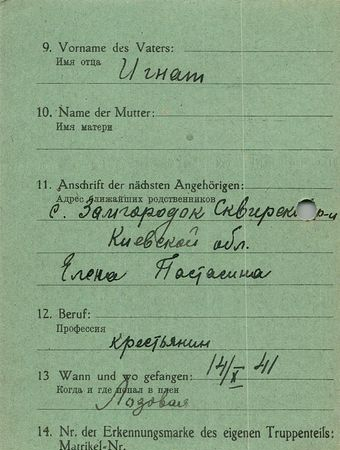 9. Vorname des Vaters:
Имя отца
Игнат
10. Name der Mutter:
Имя матери
11. Anschrift der nächsten Angehörigen:
Адрес ближайших родственников
с. Замгородок Сквирск р-н
Киевской обл.
Елена Постасина
12. Beruf:
Профессия
крестьянин
13 Wann und wo gefangen: 14/X 41
Когда и где попал в плен
Лозовая
14. Nr. der Erkennungsmarke des eigenen Truppenteils:
Matrikel-Nr.